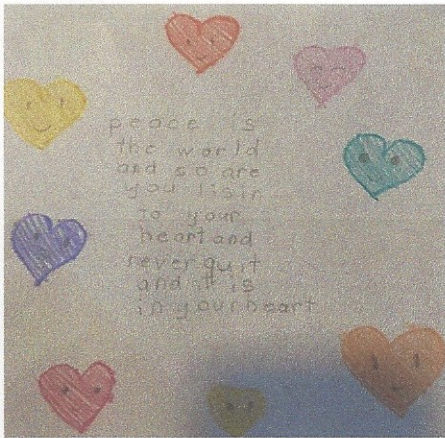 peace is
the world
and so are
you lisin
to your
heart and
never quit
and it is
in your heart